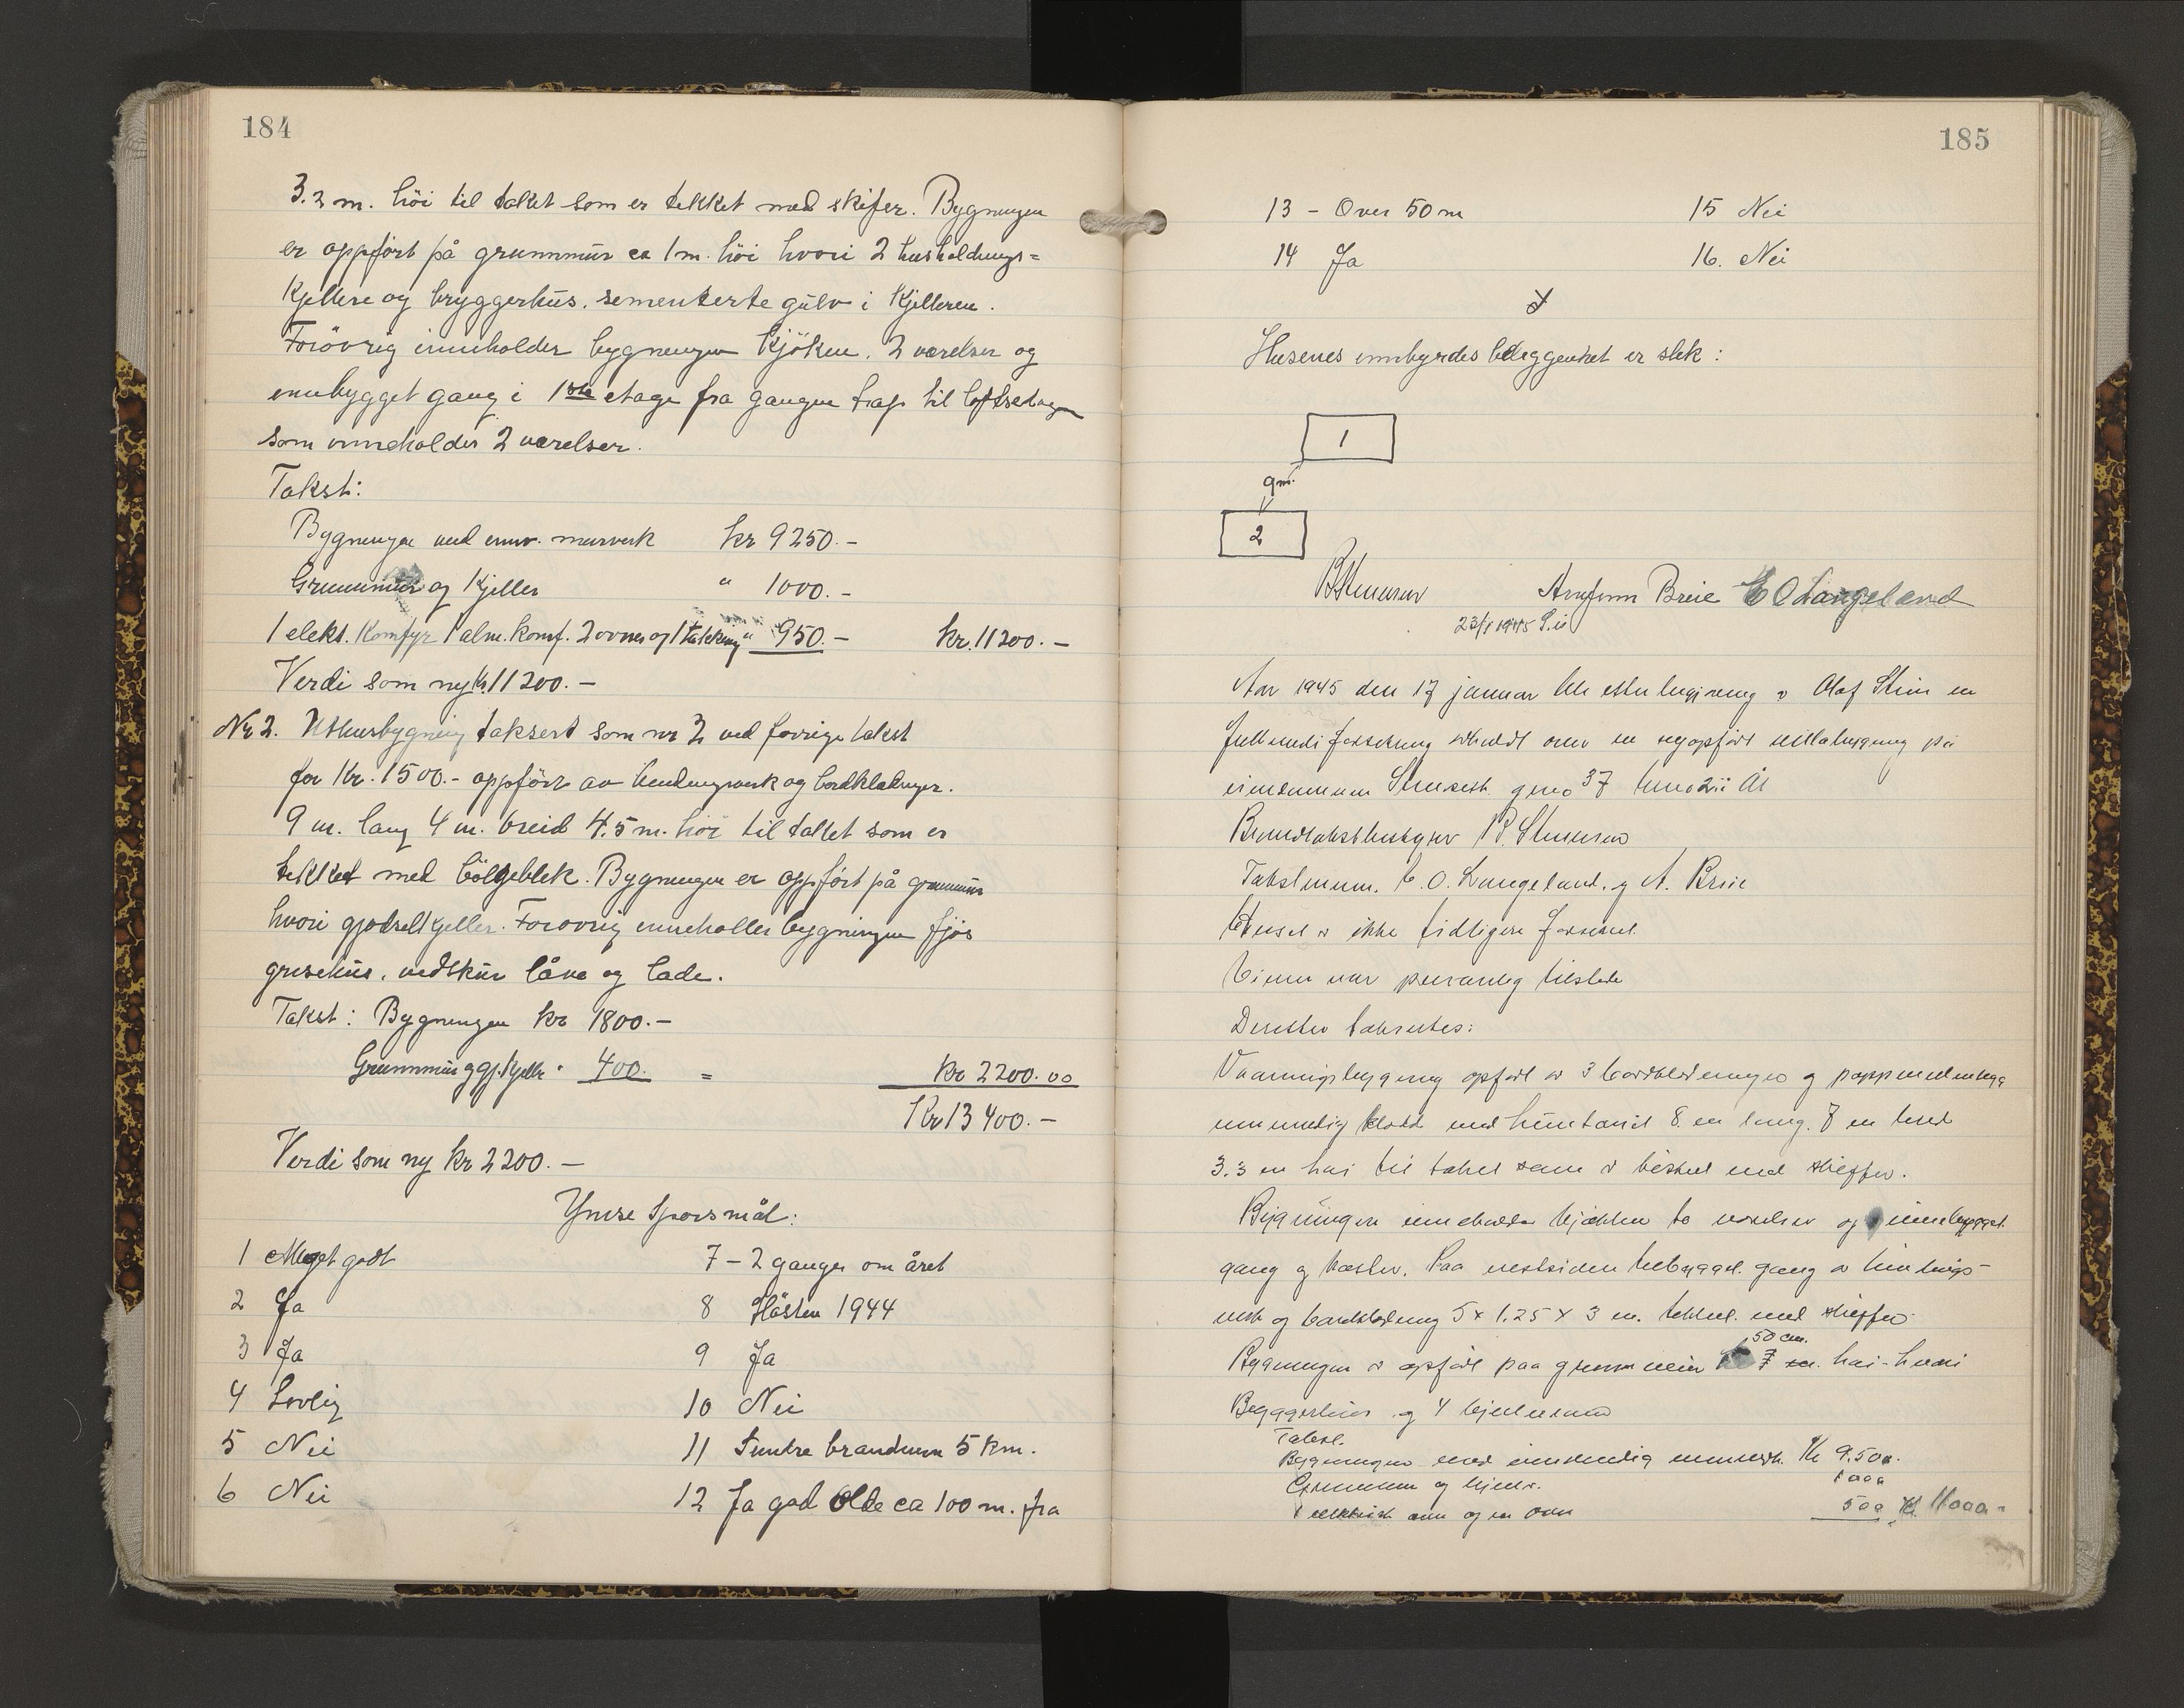 184
3.2 m. höi til taket som er tekket med skifer. Bygningen
er oppfört på grunnmur ca 1 m. höi hvori 2 husholdnings=
Kjellere og bryggerhus. sementerte gulv i Kjelleren.
Forövrig inneholder bygningen Kjöken. 2 værelser og
innbygget gang i 1ste etage fra gangen trap til loftsetagen
som inneholder 2 værelser.
Takst:
Bygningen med innv. murverk kr 9250.-
Grunnmur og Kjeller " 1000.-
1 elekt. Komfyr 1 alm. komf. 2 ovner og 1 " 950.- kr. 11200.-
Verdi som ny kr. 11200.-
Nr 2. Uthusbygning taksert som nr 2 ved forrige takst
for kr. 1500.- oppfört av bindingsverk og bordkledninger.
9 m. lang 4 m. breid 4.5 m. höi til taket som er
tekket med bölgeblek. Bygningen er oppfört på grunnmur
hvori gjödselkjeller. Forovrig inneholler bygningen fjös
grisehus. vedskur låve og lade.
Takst: Bygningen kr 1800.-
Grunnmur og gj. kjeller " 400. = kr 2200.00
Kr 13400.-
Verdi som ny kr 2200.-
Ymse Sporsmål:
1 Meget godt 7 - 2 ganger om året
2 Ja 8 Hösten 1944
3 Ja 9 Ja
4 Lovlig 10 Nei
5 Nei 11 brandvern 5 km.
6 Nei 12 Ja god Olle ca 100 m. fra
185
13 - Over 50 m 15 Nei
14 Ja 16. Nei
Husenes innbyrdes beleggenhet er slik:
1
9 m.
2
Arnfinn Breie E O Langeland
23/1 1945
Aar 1945 den 17 januar ble etter begjæring v Olaf en
over en nyopfört villabygning på
gno 37
Takstmenn. E. O. Langeland. og A. Breie
Huset er ikke tidligere
Eieren var personlig tilstede
Derefter takseres:
Vaaningsbygning opfört av 3 bordkledninger og
innvendig kledd med 8 m lang. 7 m bred
3.3 m høi til taket som er med skiffer.
Bygningen inneholder kjøkken to værelser og innebygget
gang og Paa vestsiden tilbygget gang av bindings-
verk og bordkledning 5 x 1.25 x 3 m. tekket med skiffer
50 cm.
Bygningen er opfört paa grunnmur høi - hvori
Bryggerhus og 4 kjellerrum
Takst.
Bygningen med innvendig murverk. Kr 9.500.
Grunnmur og kjeller. 1000
1 elektrisk ovn og en ovn 500 Kr 11000-